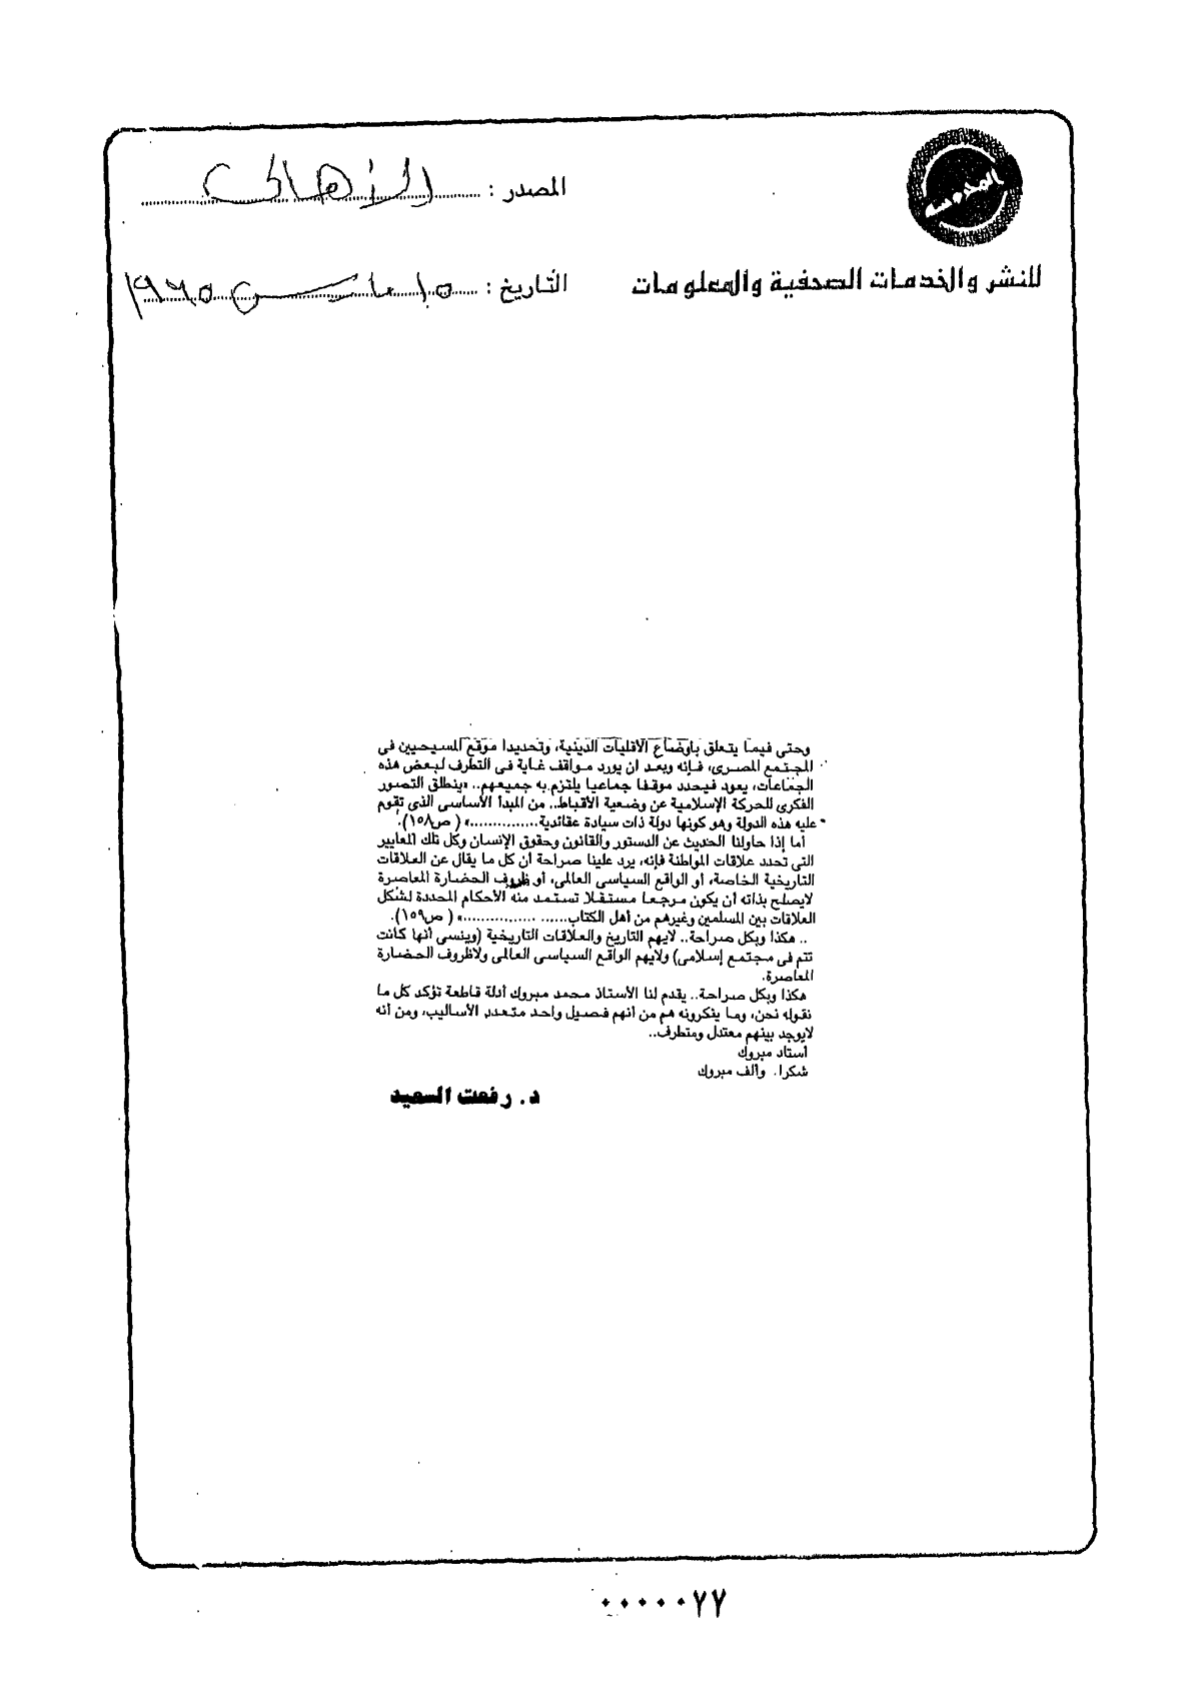 المحروسة
المصدر : الأهالى
للنشر والخدمات الصحفية والمعلومات
التاريخ : ١٥ مارس ١٩٩٥
وحتى فيما يتعلق باوضاع الاقليات الدينية، وتحديدا موقع المسيحيين فى
المجتمع المصرى، فإنه وبعد ان يورد مواقف غاية فى التطرف لبعض هذه
الجماعات، يعود فيحدد موقفا جماعيا يلتزم به جميعهم.. «ينطلق التصور
الفكرى للحركة الإسلامية عن وضعية الأقباط.. من المبدأ الأساسى الذى تقوم
عليه هذه الدولة وهو كونها دولة ذات سيادة عقائدية..............» ( ص١٥٨).
أما إذا حاولنا الحديث عن الدستور والقانون وحقوق الإنسان وكل تلك المعايير
التى تحدد علاقات المواطنة فإنه، يرد علينا صراحة أن كل ما يقال عن العلاقات
التاريخية الخاصة، أو الواقع السياسى العالمى، أو ظروف الحضارة المعاصرة
لايصلح بذاته أن يكون مرجعا مستقلا تستمد منه الأحكام المحددة لشكل
العلاقات بين المسلمين وغيرهم من أهل الكتاب...... ................» ( ص١٥٩).
.. هكذا وبكل صراحة.. لايهم التاريخ والعلاقات التاريخية (وينسى أنها كانت
تتم فى مجتمع إسلامى) ولايهم الواقع السياسى العالمى ولاظروف الحضارة
المعاصرة.
هكذا وبكل صراحة.. يقدم لنا الأستاذ محمد مبروك أدلة قاطعة تؤكد كل ما
نقوله نحن، وما ينكرونه هم من أنهم فصيل واحد متعدد الأساليب، ومن أنه
لايوجد بينهم معتدل ومتطرف..
أستاد مبروك
شكرا. وألف مبروك
د. رفعت السعيد
٠٠٠٠٠٧٧